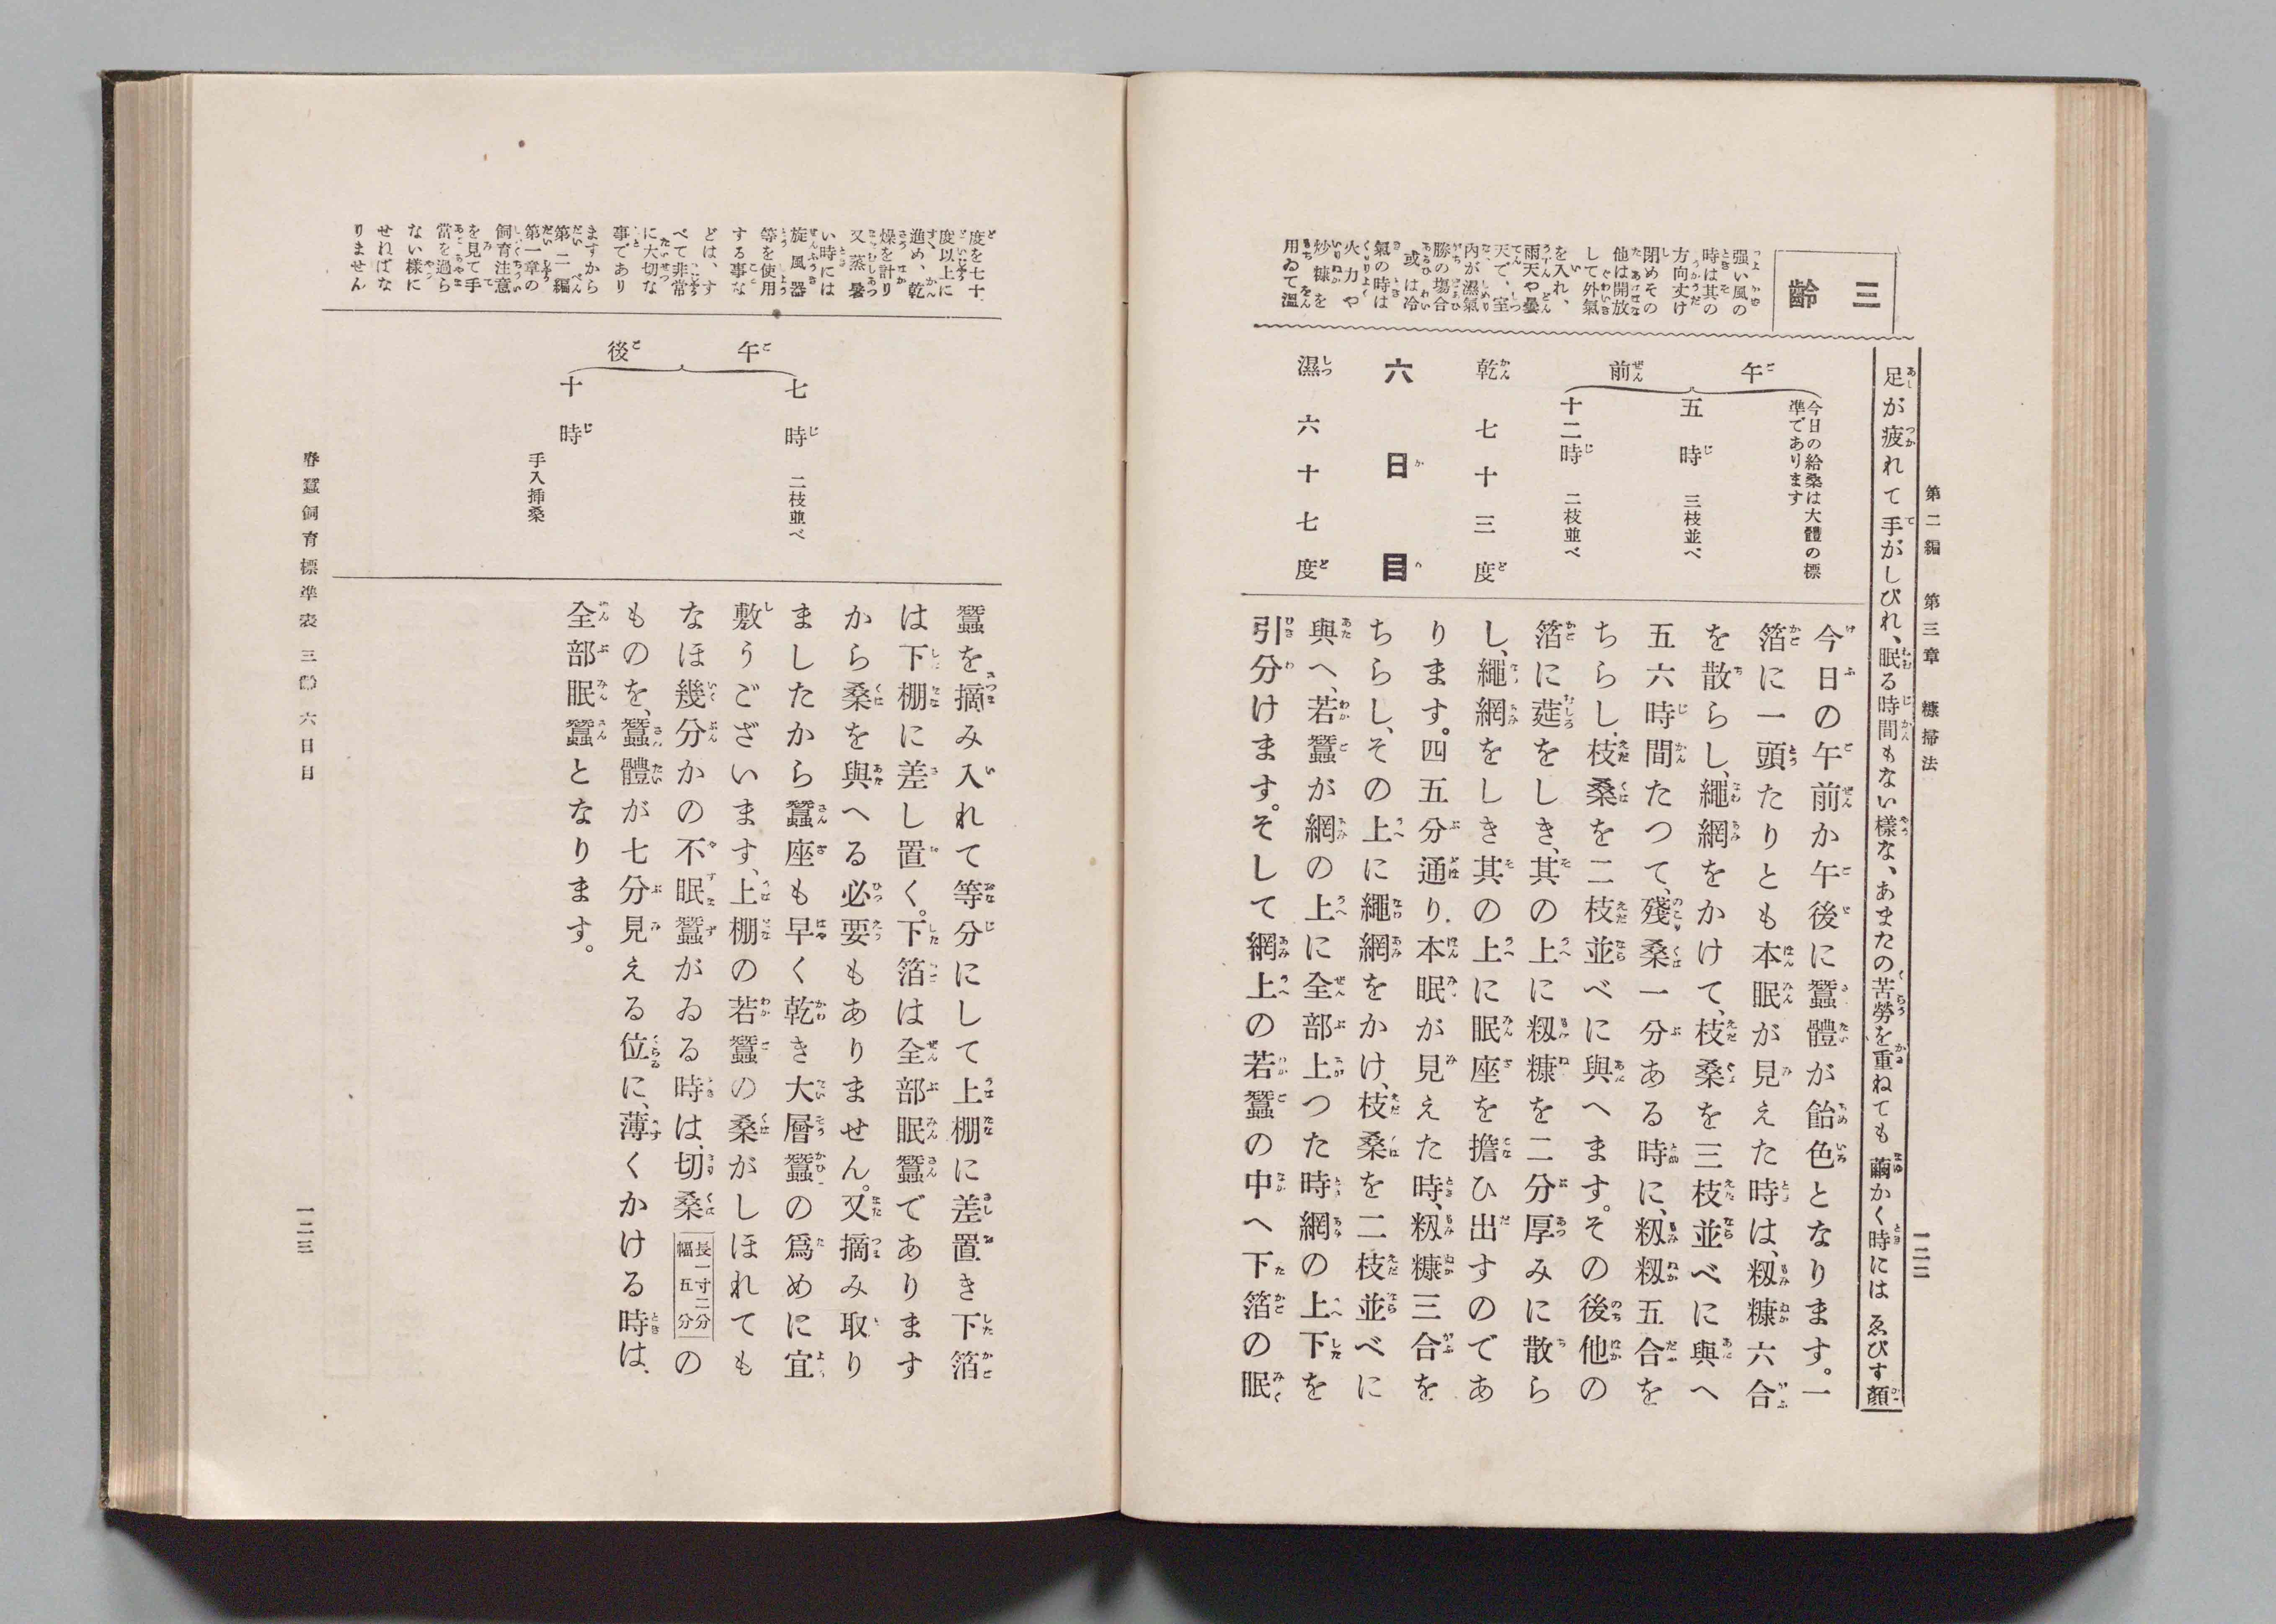 第二編　第三章　糠掃法
一二二
足が疲れて手がしびれ、眠る時間もない樣な、あまたの苦勞を重ねても　繭かく時には　ゑびす顏
三齡
强い風の
時は其の
方向丈け
閉めその
他は開放
して外氣
を入れ、
雨天や曇
天で、室
內が濕氣
勝の塲合
或は冷
氣の時は
火力や
炒糠を
用ゐて溫
今日の給桑は大體の標
準であります
午前
五時　三枝並べ
十二時　二枝並べ
乾　七十三度
六日目
濕　六十七度
今日の午前か午後に蠶體が飴色となります。一
箔に一頭たりとも本眠が見えた時は、籾糠六合
を散らし、繩網をかけて、枝桑を三枝並べに與へ
五六時間たつて、殘桑一分ある時に、籾籾五合を
ちらし、枝桑を二枝並べに與へます。その後他の
箔に莚をしき、其の上に籾糠を二分厚みに散ら
し、繩網をしき其の上に眠座を擔ひ出すのであ
ります。四五分通り、本眠が見えた時、籾糠三合を
ちらし、その上に繩網をかけ、枝桑を二枝並べに
與へ、若蠶が網の上に全部上つた時網の上下を
引分けます。そして網上の若蠶の中へ下箔の眠
度を七十
度以上に
進め、乾
燥を計り
又蒸暑
い時には
旋風器
等を使用
する事な
どは、す
べて非常
に大切な
事であり
ますから
第二編
第一章の
飼育注意
を見て手
當を過ら
ない樣に
せねばな
りません
午後
七時　二枝並べ
十時
手入揷桑
蠶を摘み入れて等分にして上棚に差置き下箔
は下棚に差し置く。下箔は全部眠蠶であります
から桑を與へる必要もありません。又摘み取り
ましたから蠶座も早く乾き大層蠶の爲めに宜
敷うございます、上棚の若蠶の桑がしほれても
なほ幾分かの不眠蠶がゐる時は、切桑長一寸二分幅五分の
ものを、蠶體が七分見える位に、薄くかける時は、
全部眠蠶となります。
春蠶飼育標準表　三齡　六日目
一二三